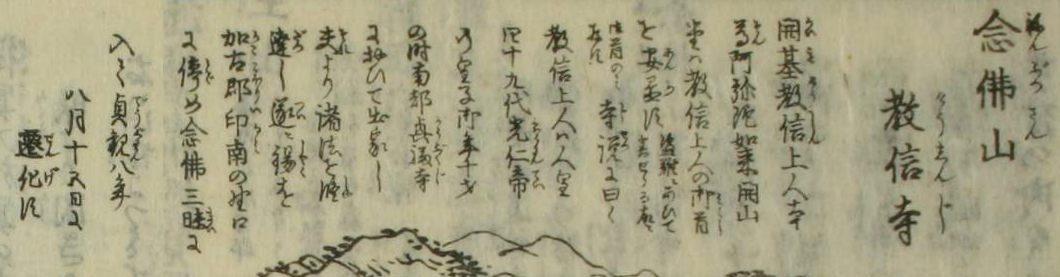 念佛山
教信寺
開基教信上人本
尊阿弥陀如来開山
堂ハ教信上人の御首
を安置す
寺説に曰く
教信上人ハ人皇
四十九代光仁帝
の皇子御年十才
の時南都興福寺
に於ひて出家し
夫より諸法を
遂に錫を
加古郡印南の野口
に停め念佛三昧に
入て貞観八年
八月十五日に
遷化す